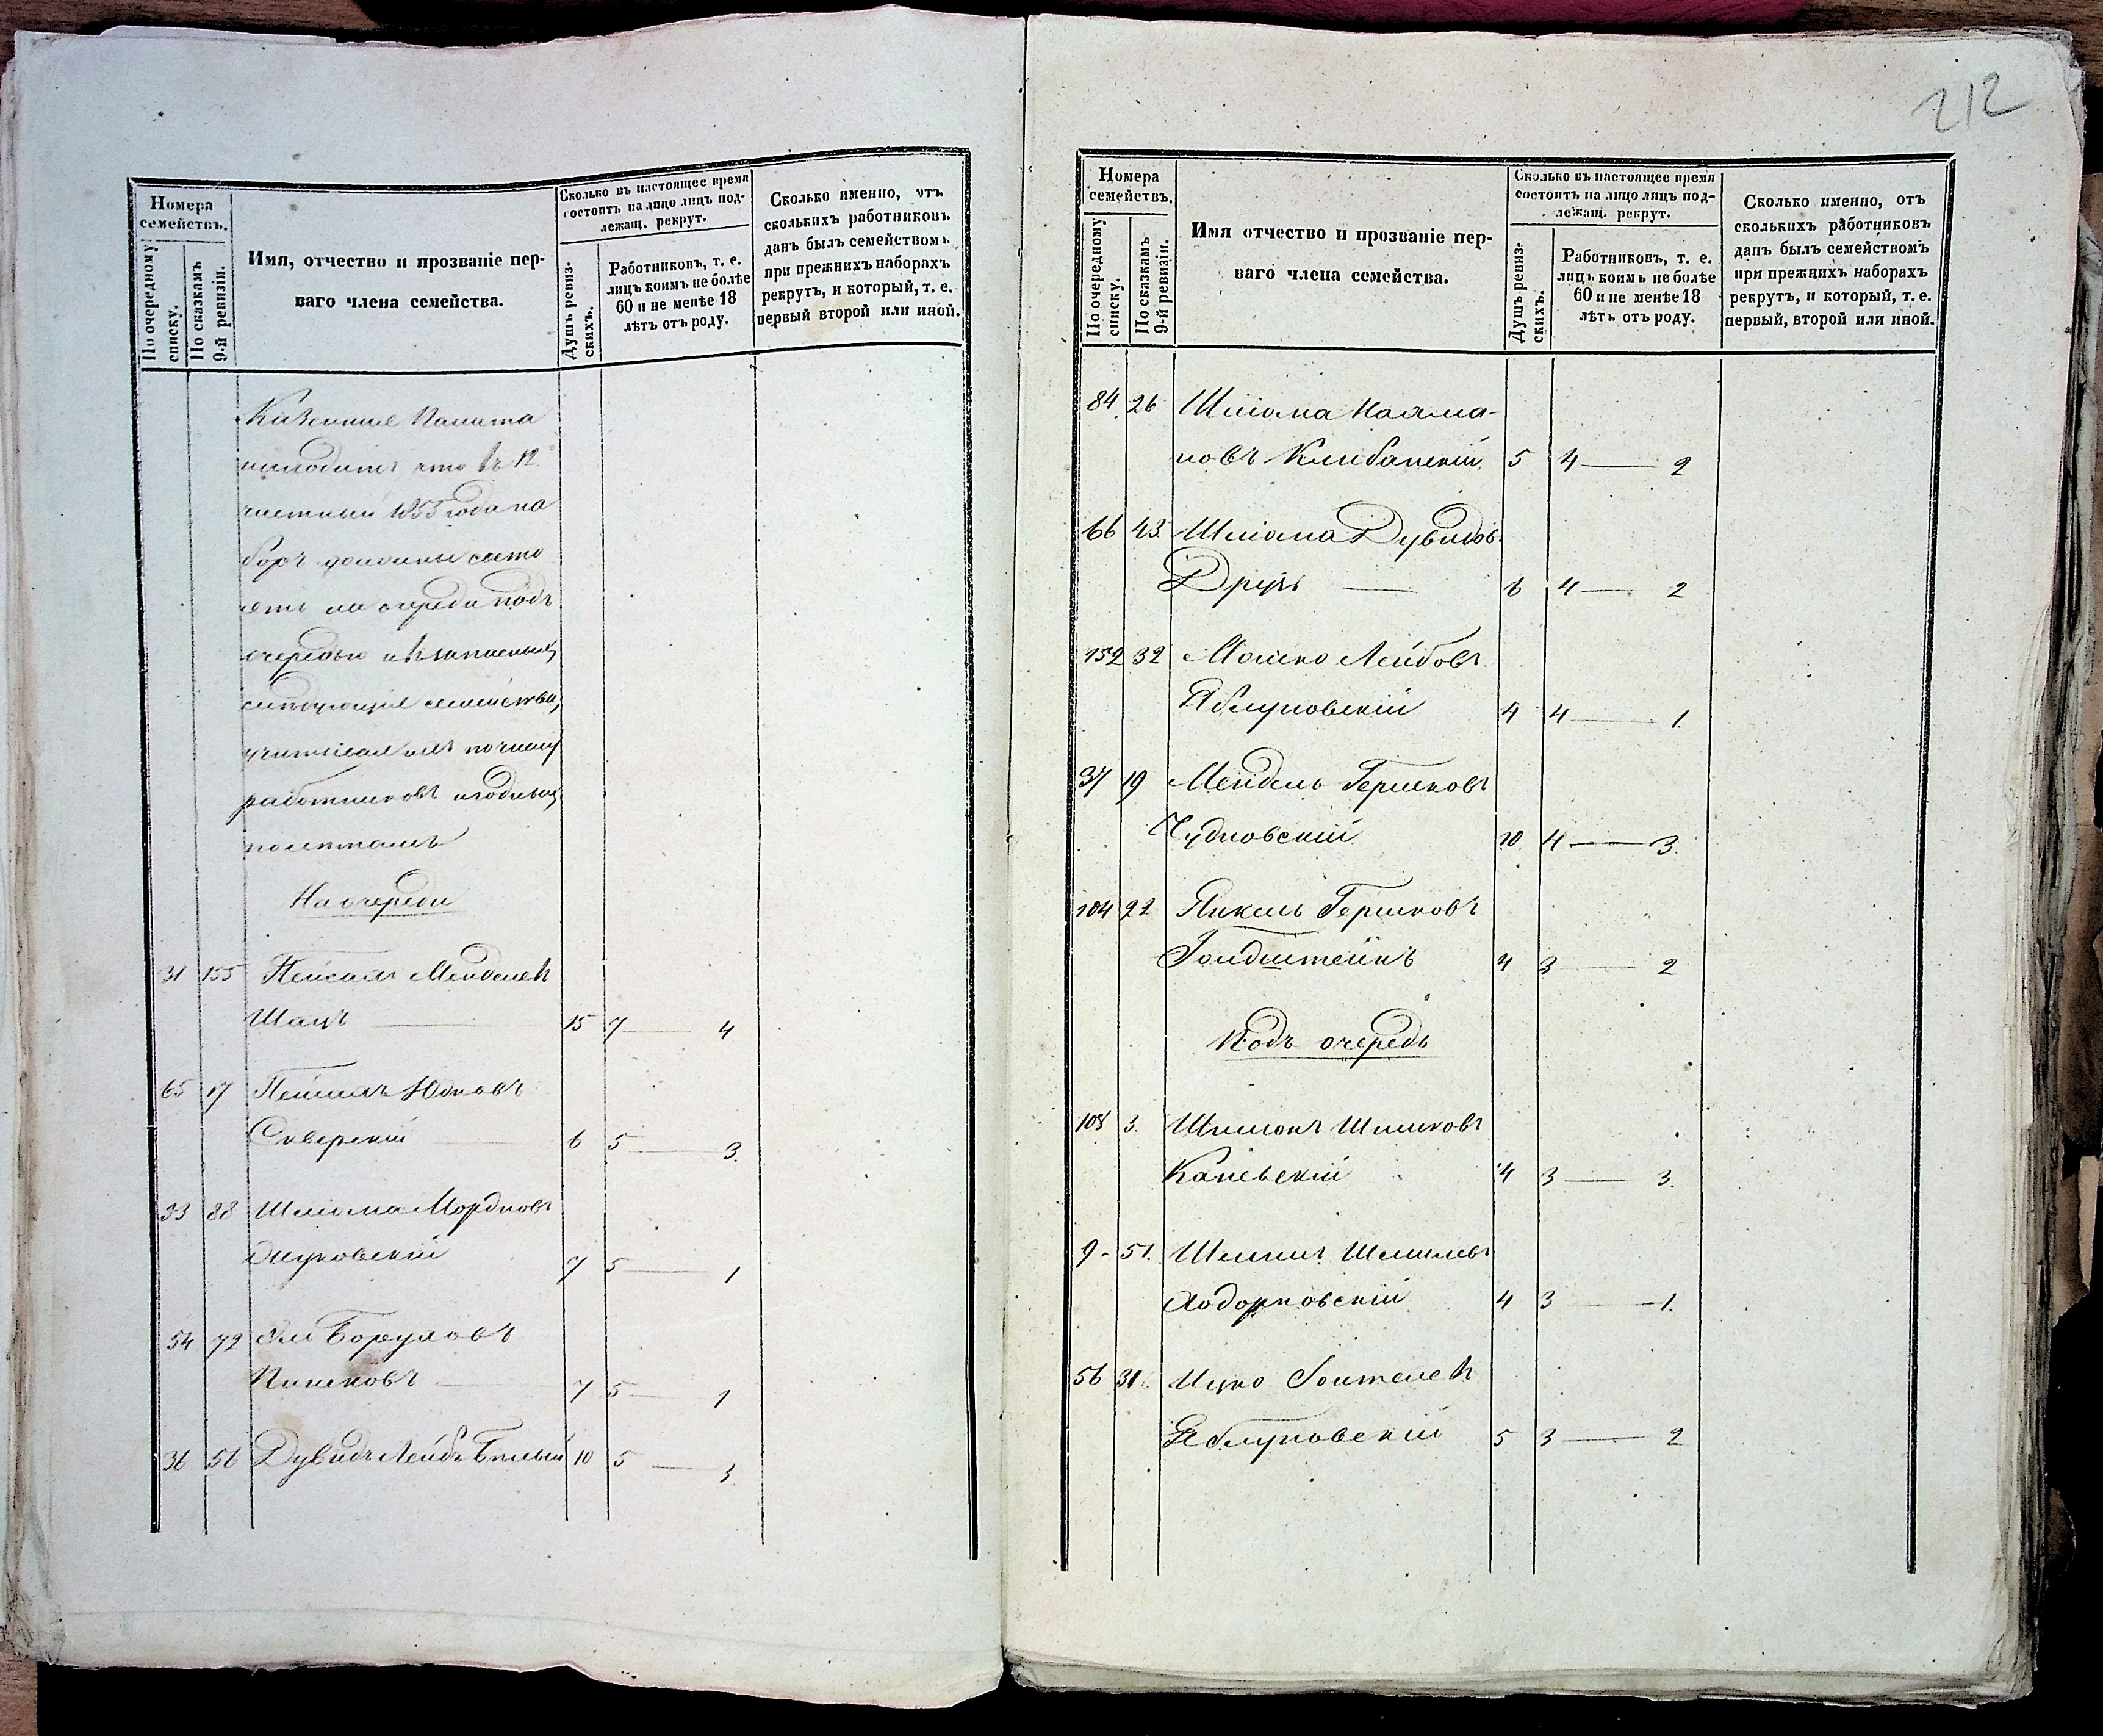 Номера
семействъ.
По очередному
списку.
По сказкамъ
9-й ревизіи.
Имя, отчество и прозваніе пер-
ваго члена семейства.
Сколько въ настоящее время
состоитъ на лицо лицъ под-
лежащ. рекрут.
Душъ ревиз-
скихъ.
Работниковъ, т. е.
лицъ коимъ не болѣе
60 и не менѣе 18
лѣтъ отъ роду.
Сколько именно, отъ
сколькихъ работниковъ
данъ былъ семействомъ
при прежнихъ наборахъ
рекрутъ, и который, т. е.
первый второй или иной.
Казенная Палата
находитъ что въ 12
частный 1855 года на
боръ должны состо
ять на очереди подъ
очередью и
слѣдующія семейства,
работниковъ и годныхъ
На очереди
31 155
Шацъ 15 7 4
65 17 Юдковъ
Сквирскій 6 5 3.
33 88 Шліома Мордковъ
7 5 1
54 72 Боруховъ
7 5 1
36 56 Дувидъ Лейбъ Бѣлый 10 5
212
Номера
семействъ.
По очередному
списку.
По сказкамъ
9-й ревизіи.
Имя отчество и прозваніе пер-
ваго члена семейства.
Сколько въ настоящее время
состоитъ на лицо лицъ под-
лежащ. рекрут.
Душъ ревиз-
скихъ.
Работниковъ, т. е.
лицъ коимъ не болѣе
60 и не менѣе 18
лѣтъ отъ роду.
Сколько именно, отъ
сколькихъ работниковъ
данъ былъ семействомъ
при прежнихъ наборахъ
рекрутъ, и который, т. е.
первый, второй или иной.
84 26 Шліома Нахма-
новъ Клибанскій 5 4 2
66 43. Шліома Дувидов
Друзь 6 4 2
152 32 Мошко Лейбовъ
Яблуновскій 4 4 1.
37 19 Мендель Гершковъ
Чудновскій 10 4 3.
104 22 Янкель Гершковъ
Голдштейнъ 4 3 2
Подъ очередь
108 3. Шимонъ Шмилковъ
Каневскій 4 3 3.
9. 51. Шмилевъ
Ходорковскій 4 3 1.
56 31. Ицко
Яблуновскій 5 3 2